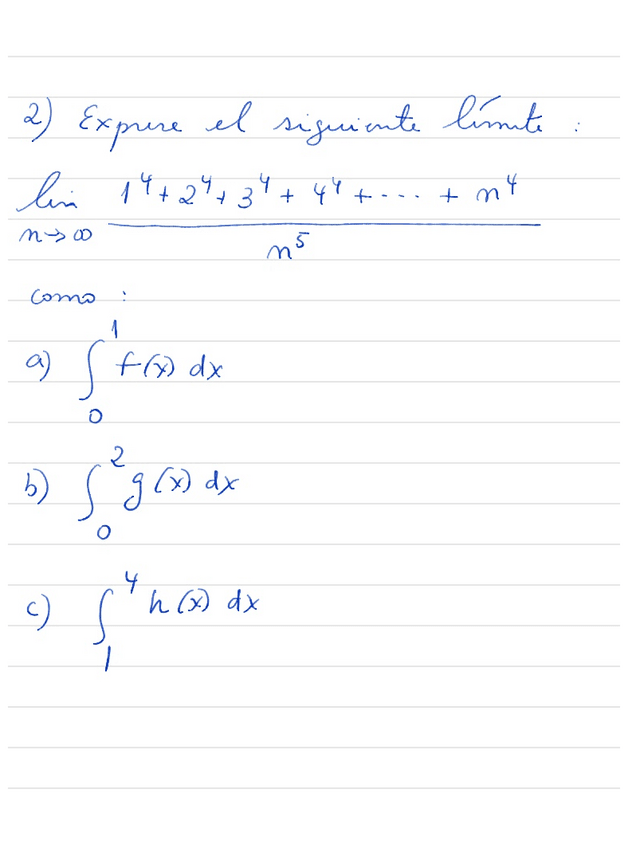 2) Exprese el siguiente límite :
lim n→∞ (1⁴ + 2⁴ + 3⁴ + 4⁴ + ---- + n⁴) / n⁵
como :
a) ∫₀¹ f(x) dx
b) ∫₀² g(x) dx
c) ∫₁⁴ h(x) dx